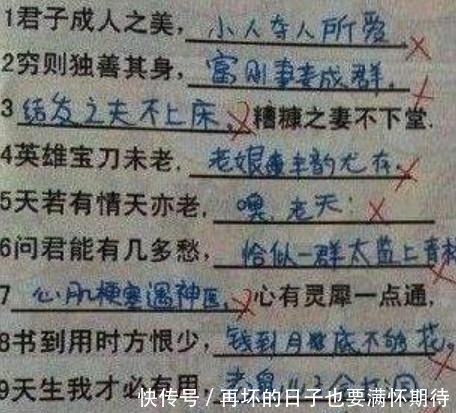 1君子成人之美，小人夺人所爱
2穷则独善其身，富则妻妾成群.
3结发之夫不上床，糟糠之妻不下堂.
4英雄宝刀未老，老娘风韵尤存.
5天若有情天亦老，噢，老天！
6问君能有几多愁，恰似一群太监上青
7心肌梗塞遇神医，心有灵犀一点通，
8书到用时方恨少，钱到月底不够花。
9天生我才必有用，老鼠儿子会
快传号／再坏的日子也要满怀期待